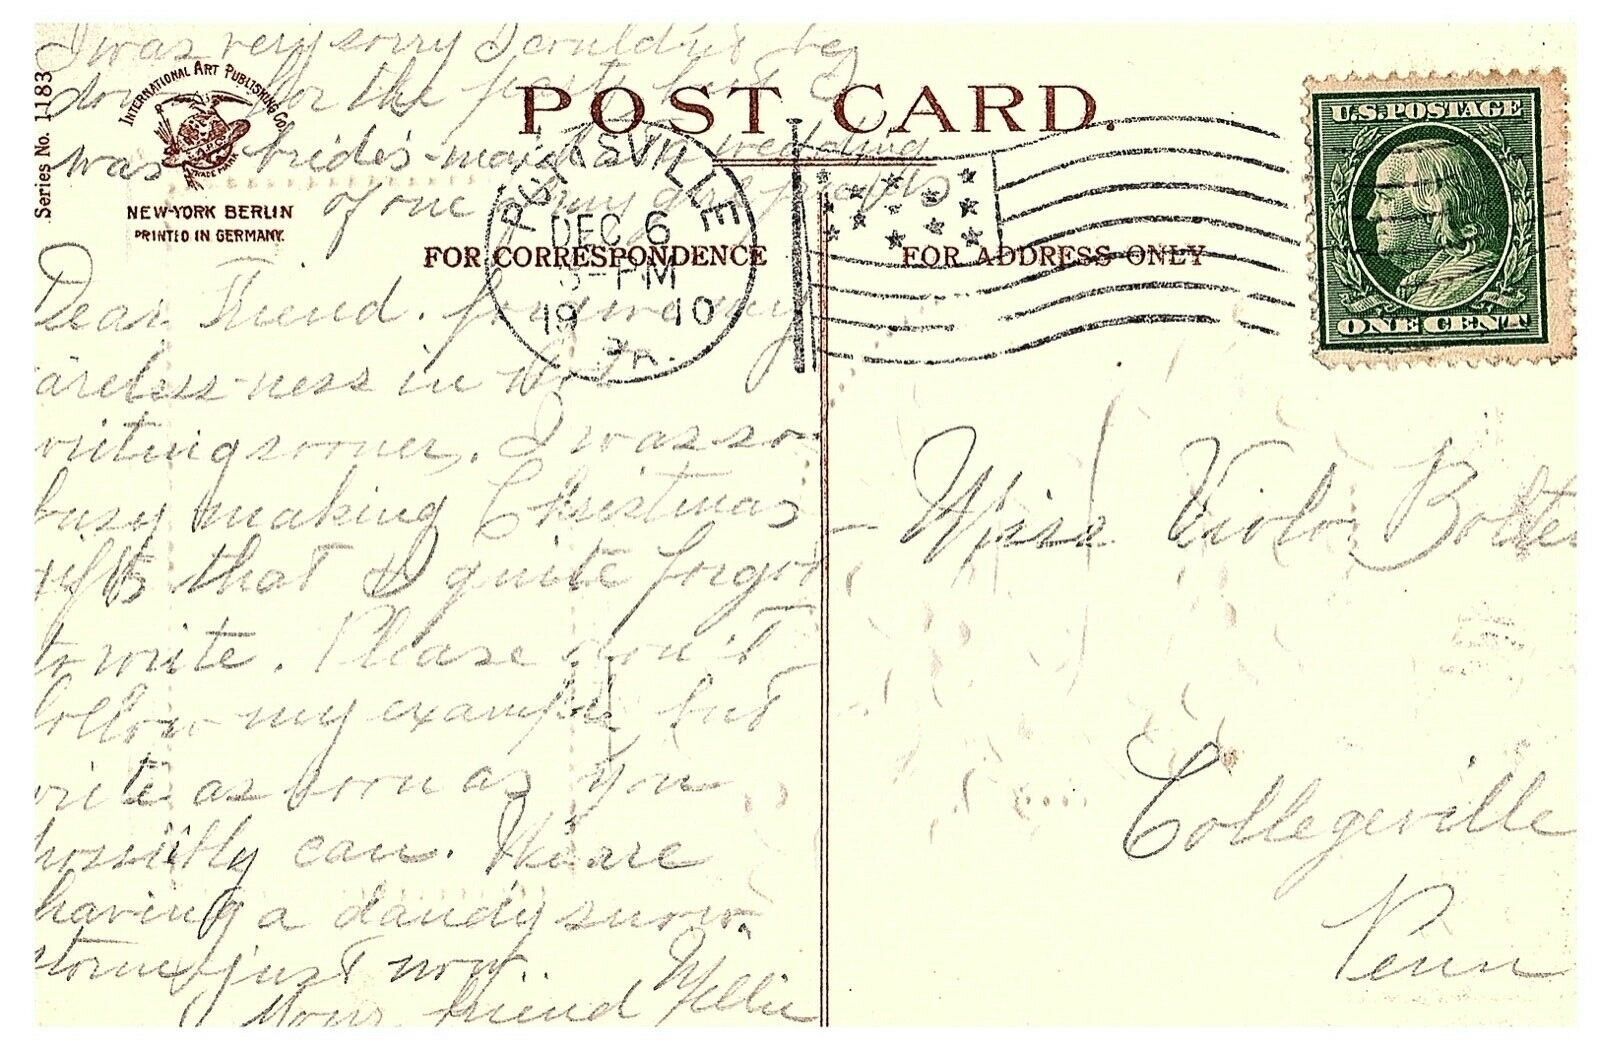 I was very sorry I couldn't be
down for the party but I
was bride's-maid at a wedding
of one of my girl friends
INTERNATIONAL ART PUBLISHING CO.
TRADE MARK
Series No. 1183
NEW-YORK BERLIN
PRINTED IN GERMANY.
POST CARD.
FOR CORRESPONDENCE
FOR ADDRESS ONLY
POTTSVILLE
DEC 6
PM
1910
Pa.
U.S. POSTAGE
ONE CENT
Dear Friend. forgive my
areless-ness in not
writing sooner. I was so
busy making Christmas
gifts that I quite forgot
to write. Please don't
follow my example but
write as soon as you
possibly can. We are
having a dandy snow.
storm just now.
Your friend Nellie
Miss Viola Bolte
Collegeville
Penn